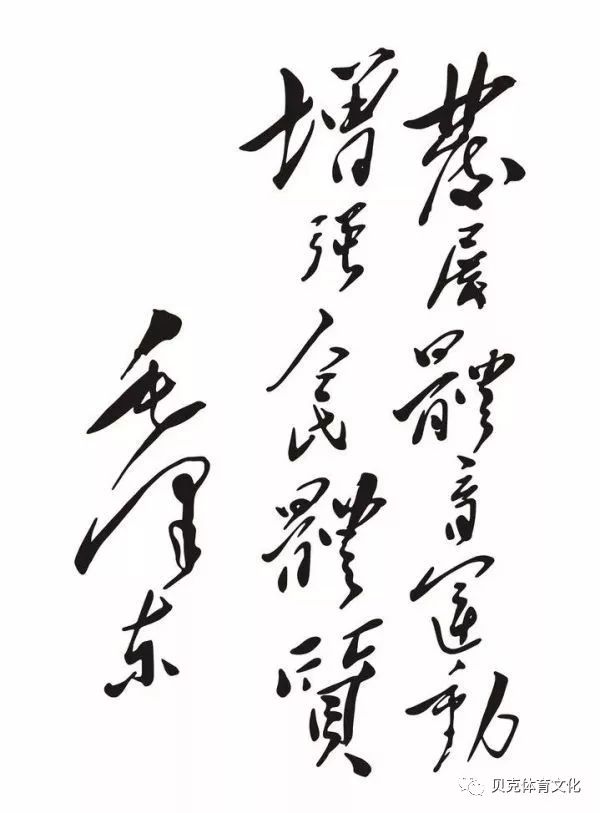 發展體育運動
增强人民體質
毛泽东
贝克体育文化